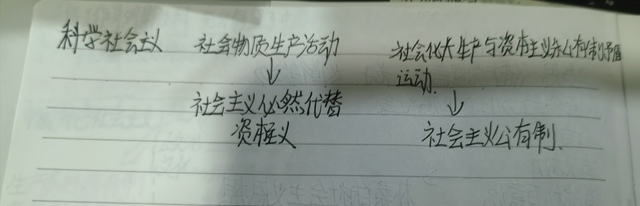 科学社会主义 社会物质生产活动 社会化大生产与资本主义私有制矛盾
运动
↓ ↓
社会主义必然代替 社会主义公有制.
资本主义